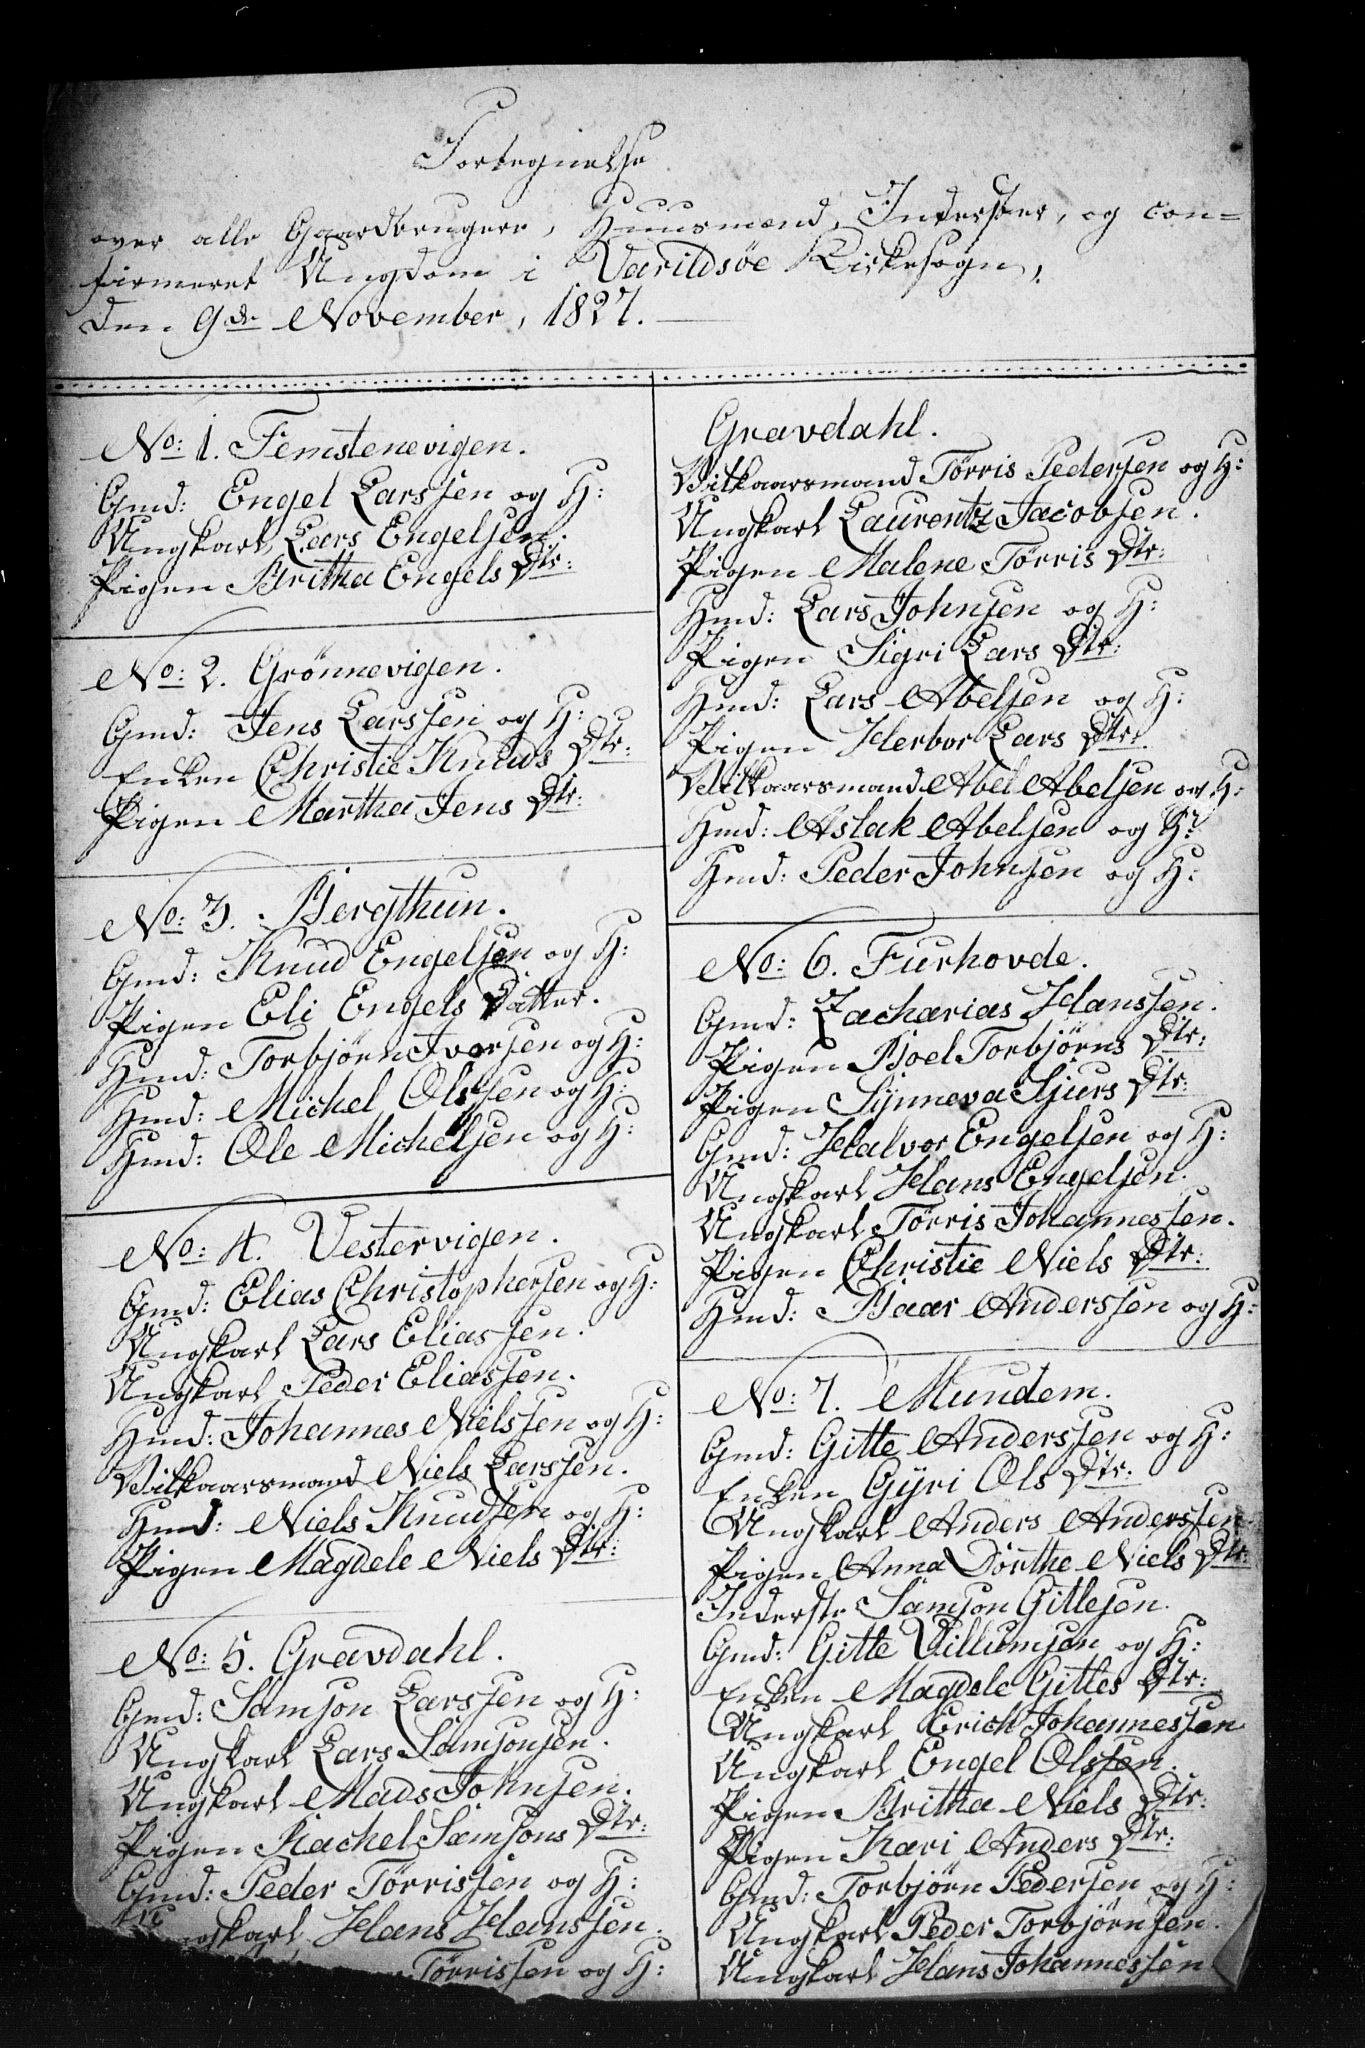 Fortegnelse
over alle Gaardbrugere, Huusmænd, Inderster, og con=
firmeret Ungdom i Varildsøe Kirkesogn,
den 9de November, 1827.
No: 1. Femstenevigen.
Gmd: Engel Larssen og H:
Ungkarl, Lars Engelsen.
Pigen Britha Engels Dtr:
No: 2. Grönnevigen.
Gmd: Jens Larssen og H:
Enken Christie Knuds Dtr:
Pigen Martha Jens Dtr:
No: 3. Bergthun.
Gmd: Knud Engelsen og H:
Pigen Eli Engels Datter.
Hmd: Torbjørn Ivorsen og H:
Hmd: Michel Olssen og H:
Hmd: Ole Michelsen og H:
No: 4. Vestervigen.
Gmd: Elias Christophersen og H:
Ungkarl Lars Eliassen.
Ungkarl Peder Eliassen.
Hmd: Johannes Nielssen og H:
Vilkaarsmand Niels Larssen.
Hmd: Niels Knudsen og H:
Pigen Magdele Niels Dtr:
No: 5. Gravdahl.
Gmd: Samson Larssen og H:
Ungkarl Lars Samsonsen.
Ungkarl Mads Johnsen.
Pigen Rachel Samsons Dtr:
Gmd: Peder Tørrissen og H:
Ungkarl Hans Hanssen.
Tørrissen og H:
Gravdahl.
Vilkaarsmand Tørris Pedersen og H:
Ungkarl Laurentz Jacobsen.
Pigen Malene Tørris Dtr:
Hmd: Lars Johnsen og H:
Pigen Sigri Lars Dtr:
Hmd: Lars Abelsen og H:
Pigen Herbor Lars Dtr:
Vilkaarsmand Abel Abelsen og H:
Hmd: Aslak Abelsen og H:
Hmd: Peder Johnsen og H:
No: 6. Furhovde.
Gmd: Zacharias Hanssen.
Pigen Boel Torbjörns Dtr:
Pigen Synneva Sjurs Dtr:
Gmd: Halvor Engelsen og H:
Ungkarl Hans Engelsen.
Ungkarl Tørris Johannessen.
Pigen Christie Niels Dtr:
Hmd: Baar Anderssen og H:
No: 7. Mundem.
Gmd: Gitte Anderssen og H:
Enken Gyri Ols Dtr:
Ungkarl Anders Anderssen
Pigen Anna Dorthe Niels Dtr:
Inderste Samson Gittesen.
Gmd: Gitte Villumsen og H:
Enken Magdele Gittes Dtr:
Ungkarl Erich Johannessen
Ungkarl Engel Olssen.
Pigen Britha Niels Dtr:
Pigen Kari Anders Dtr:
Gmd: Torbjørn Pedersen og H:
Ungkarl Peder Torbjørnsen.
Ungkarl Hans Johannessen